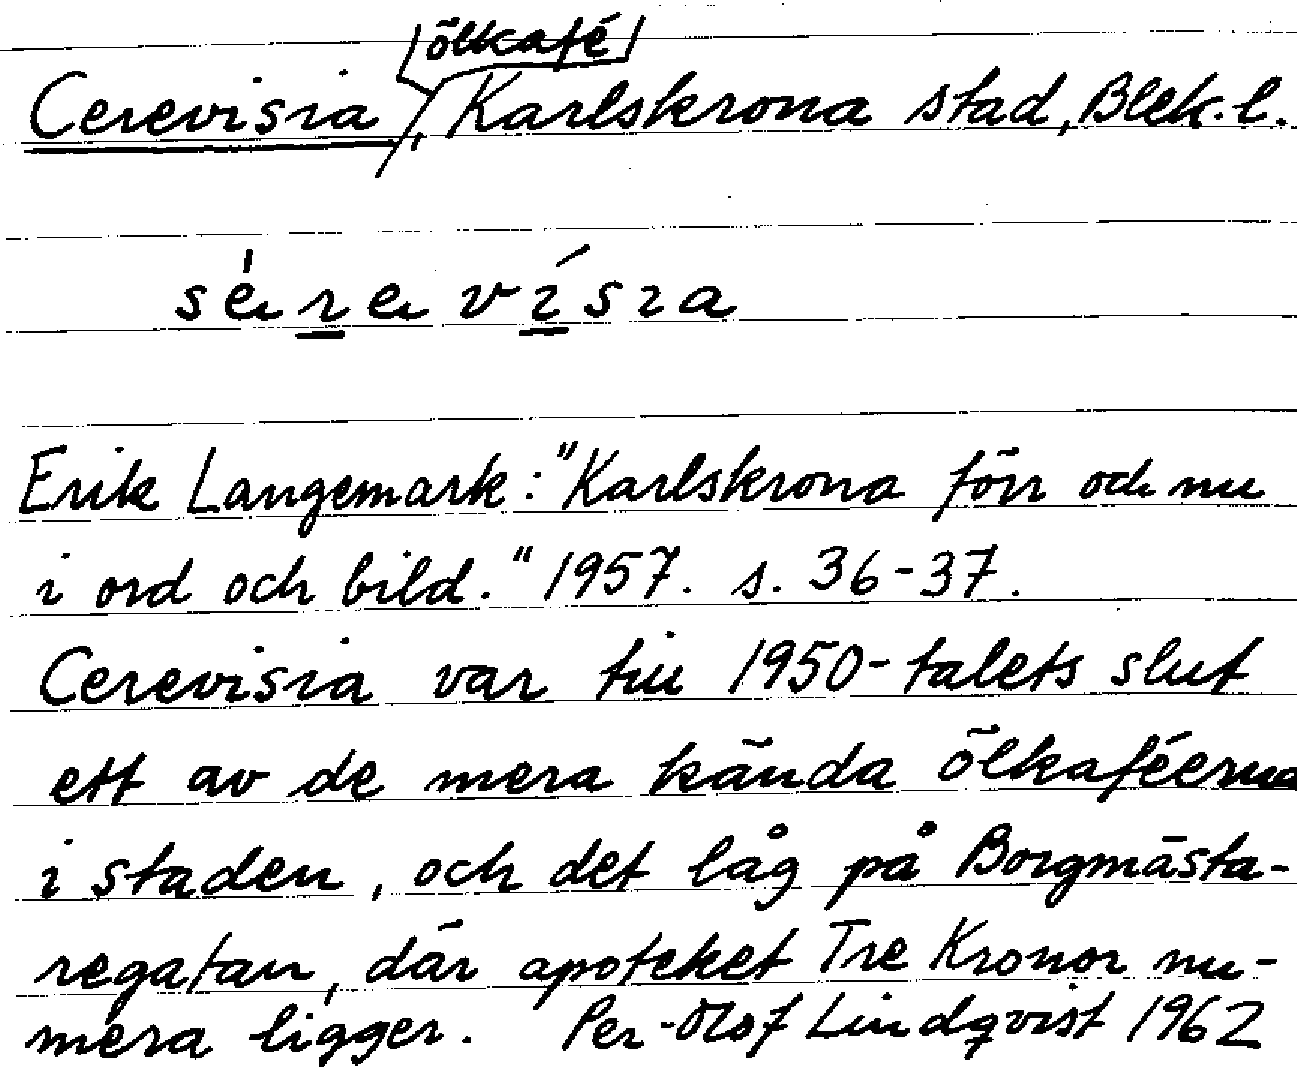 ölkafé
Cerevisia, Karlskrona stad, Blek. l.
sérevísia
Erik Langemark: "Karlskrona förr och nu
i ord och bild." 1957. s. 36-37.
Cerevisia var till 1950-talets slut
ett av de mera kända ölkaféerna
i staden, och det låg på Borgmästa-
regatan, där apoteket Tre Kronor nu-
mera ligger. Per-Olof Lindqvist 1962